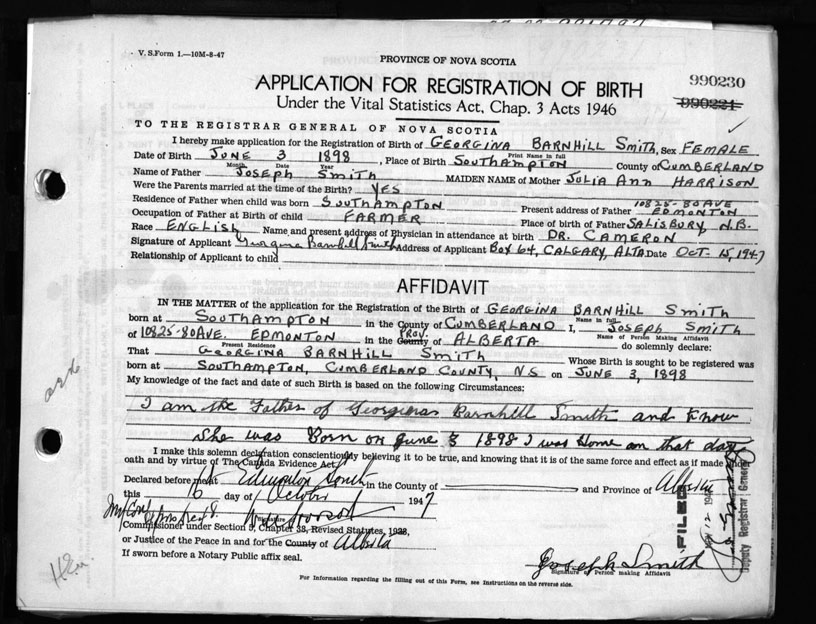 V. S. Form 1.—10M-8-47
PROVINCE OF NOVA SCOTIA
990230
APPLICATION FOR REGISTRATION OF BIRTH
990221
Under the Vital Statistics Act, Chap. 3 Acts 1946
TO THE REGISTRAR GENERAL OF NOVA SCOTIA
I hereby make application for the Registration of Birth of GEORGINA BARNHILL SMITH, Sex FEMALE
Print Name in full
Date of Birth JUNE 3 1898, Place of Birth SOUTHAMPTON County of CUMBERLAND
Month Date Year
Name of Father JOSEPH SMITH MAIDEN NAME of Mother JULIA ANN HARRISON
Were the Parents married at the time of the Birth? YES
Residence of Father when child was born SOUTHAMPTON Present address of Father 10825-80 AVE EDMONTON
Occupation of Father at Birth of child FARMER Place of birth of Father SALISBURY, N.B.
Race ENGLISH Name and present address of Physician in attendance at birth DR. CAMERON
Signature of Applicant Georgina Barnhill Smith Address of Applicant BOX 64, CALGARY, ALTA Date OCT. 15, 1947
Relationship of Applicant to child
AFFIDAVIT
IN THE MATTER of the application for the Registration of the Birth of GEORGINA BARNHILL SMITH
Name in full
born at SOUTHAMPTON in the County of CUMBERLAND I, JOSEPH SMITH
Name of Person Making Affidavit
of 10825-80 AVE. EDMONTON in the County PROV. of ALBERTA do solemnly declare:
Present Residence
That GEORGINA BARNHILL SMITH Whose Birth is sought to be registered was
born at SOUTHAMPTON, CUMBERLAND COUNTY, N.S on JUNE 3, 1898
My knowledge of the fact and date of such Birth is based on the following Circumstances:
I am the Father of Georginas Barnhill Smith and know
she was Born on June 3 1898 I was Home on that day
I make this solemn declaration conscientiously believing it to be true, and knowing that it is of the same force and effect as if made under
oath and by virtue of The Canada Evidence Act.
Declared before me at Edmonton South in the County of and Province of Alberta
this 16 day of October 1947
Commissioner under Section 3, Chapter 38, Revised Statutes, 1923,
or Justice of the Peace in and for the County of Alberta
If sworn before a Notary Public affix seal.
Joseph Smith
Signature of Person making Affidavit
For Information regarding the filling out of this Form, see Instructions on the reverse side.
FILED
Deputy Registrar General